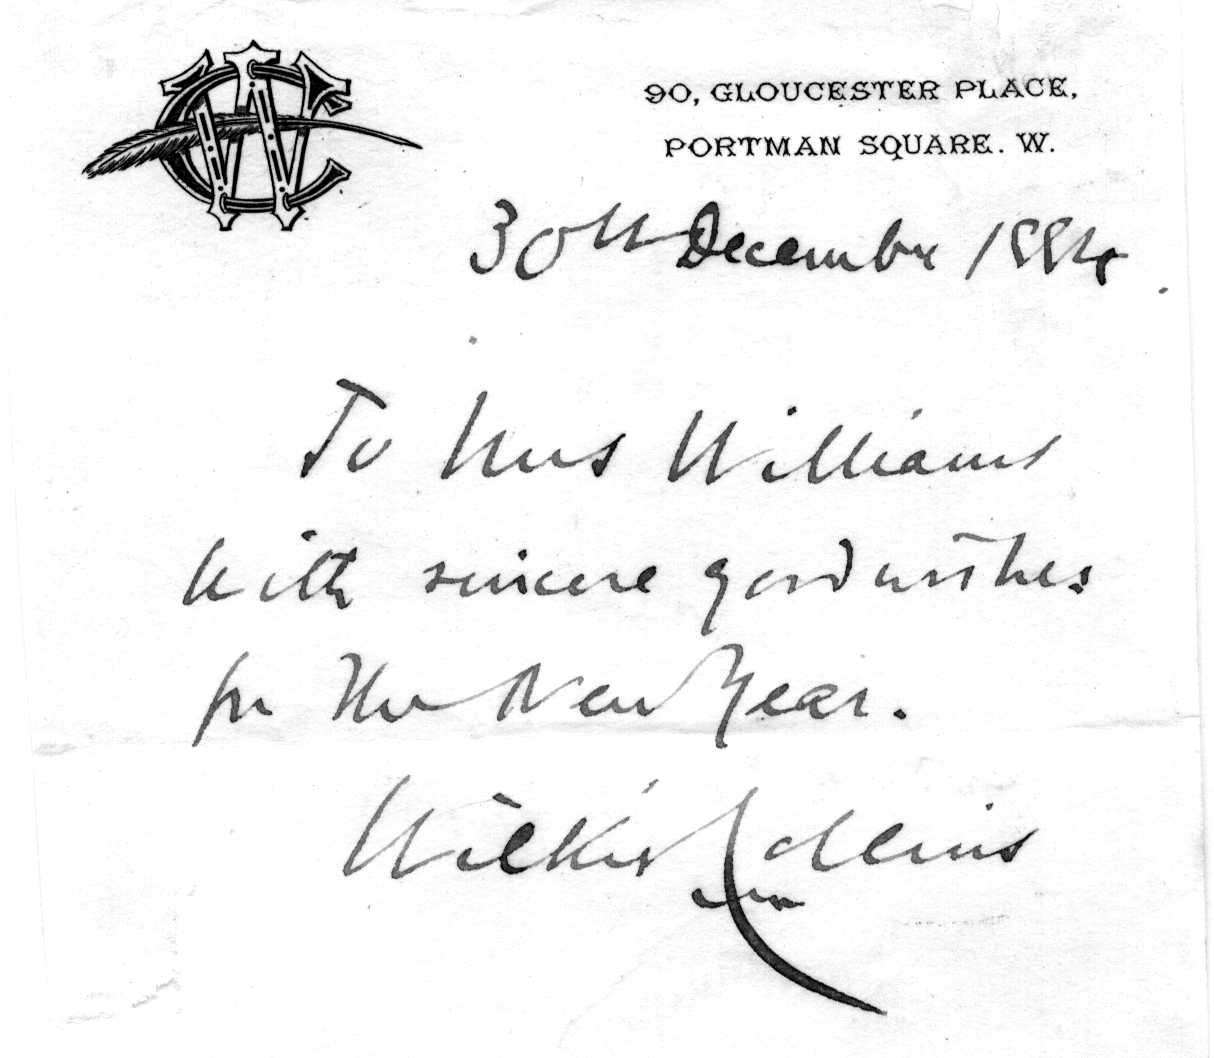 WC
90, GLOUCESTER PLACE,
PORTMAN SQUARE. W.
30th December 1884
To Mrs Williams
with sincere good wishes
for the New Year.
Wilkie Collins